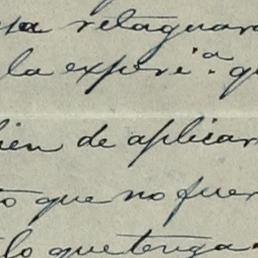 sa retaguar
la experi.ª q
ien de aplicar
que no fuer
lo que tenga